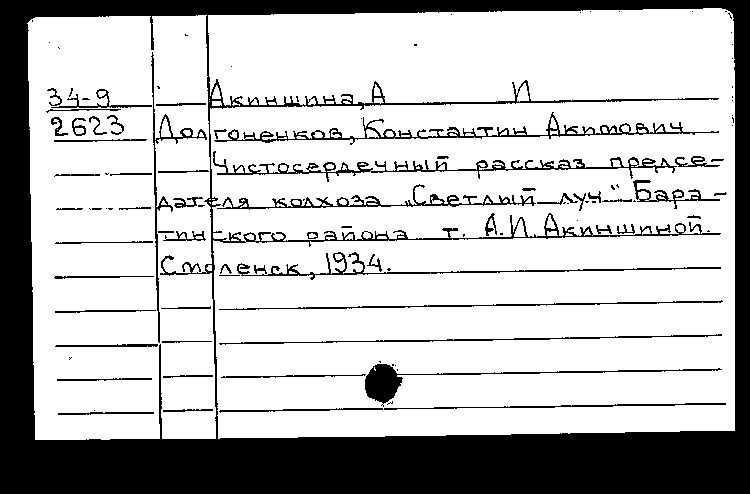 34-9 Акиншина, А И
2623 Долгоненков, Константин Акимович.
Чистосердечный рассказ предсе-
дателя колхоза „Светлый луч" Бара-
тинского района т. А.И. Акиншиной.
Смоленск, 1934.